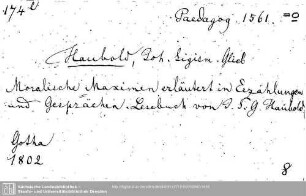 174 d
Paedagog. 1561. =o
Haubold, Joh. Sigism. Glieb
Moralische Maximen erläutert in Erzählungen
und Gesprächen. Lesebuch von J. S. G. Haubold
Gotha
1802
8
Sächsische Landesbibliothek -
Staats- und Universitätsbibliothek Dresden